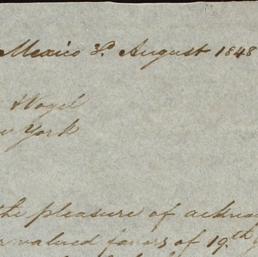 Mexico 3d August 1848
York
the pleasure of
valued favors of 19th